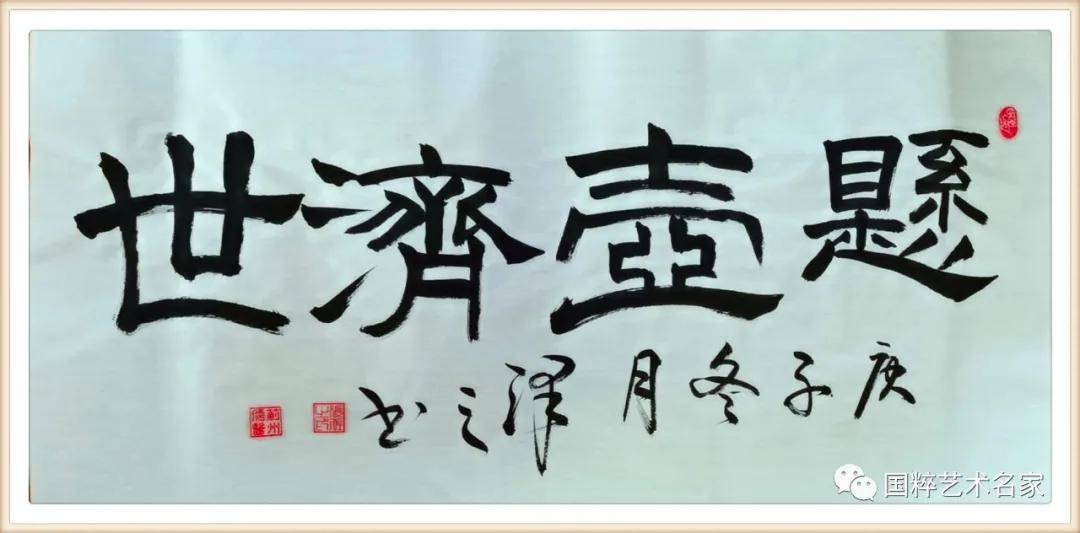 懸壺濟世
庚子冬月泽之书
国粹艺术名家